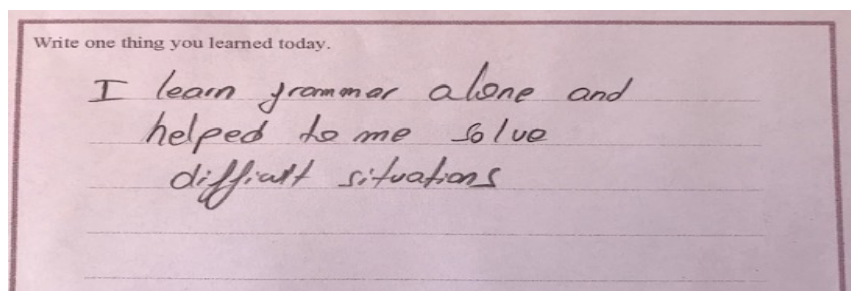 Write one thing you learned today.
I learn grammer alone and
helped to me solve
difficult situations